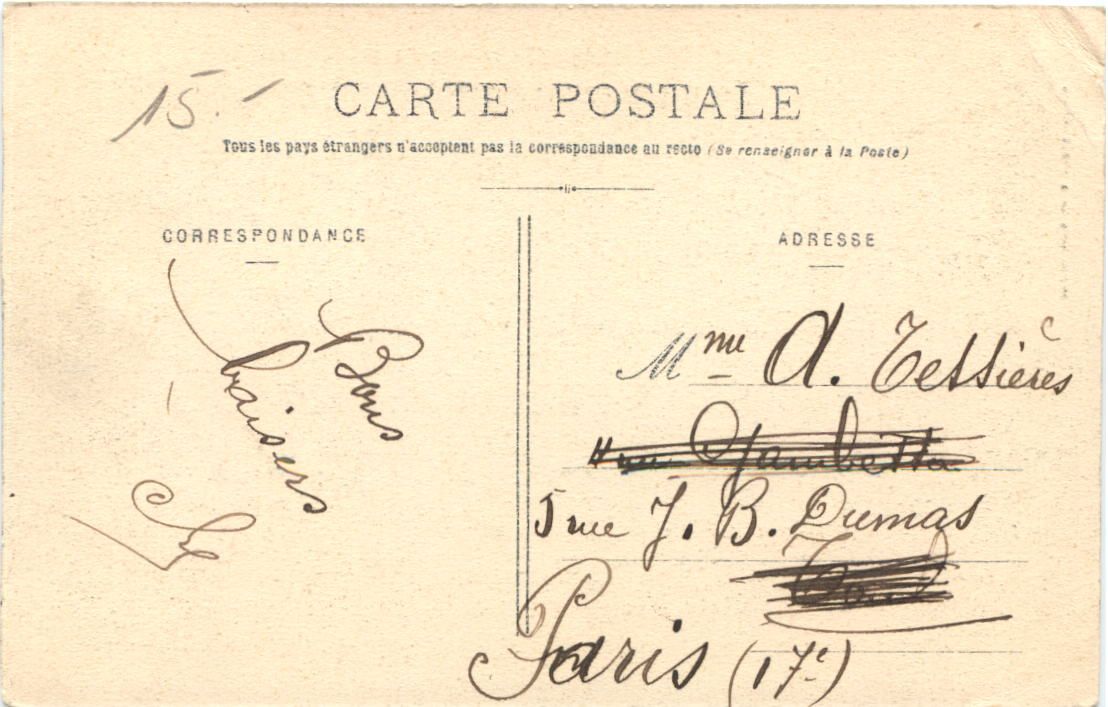 15.-
CARTE POSTALE
Tous les pays étrangers n'acceptent pas la correspondance au recto (Se renseigner à la Poste)
CORRESPONDANCE
Bons
baisers
ADRESSE
Mme A. Tessières
rue Gambetta
5 rue J. B. Dumas
Paris (17e)